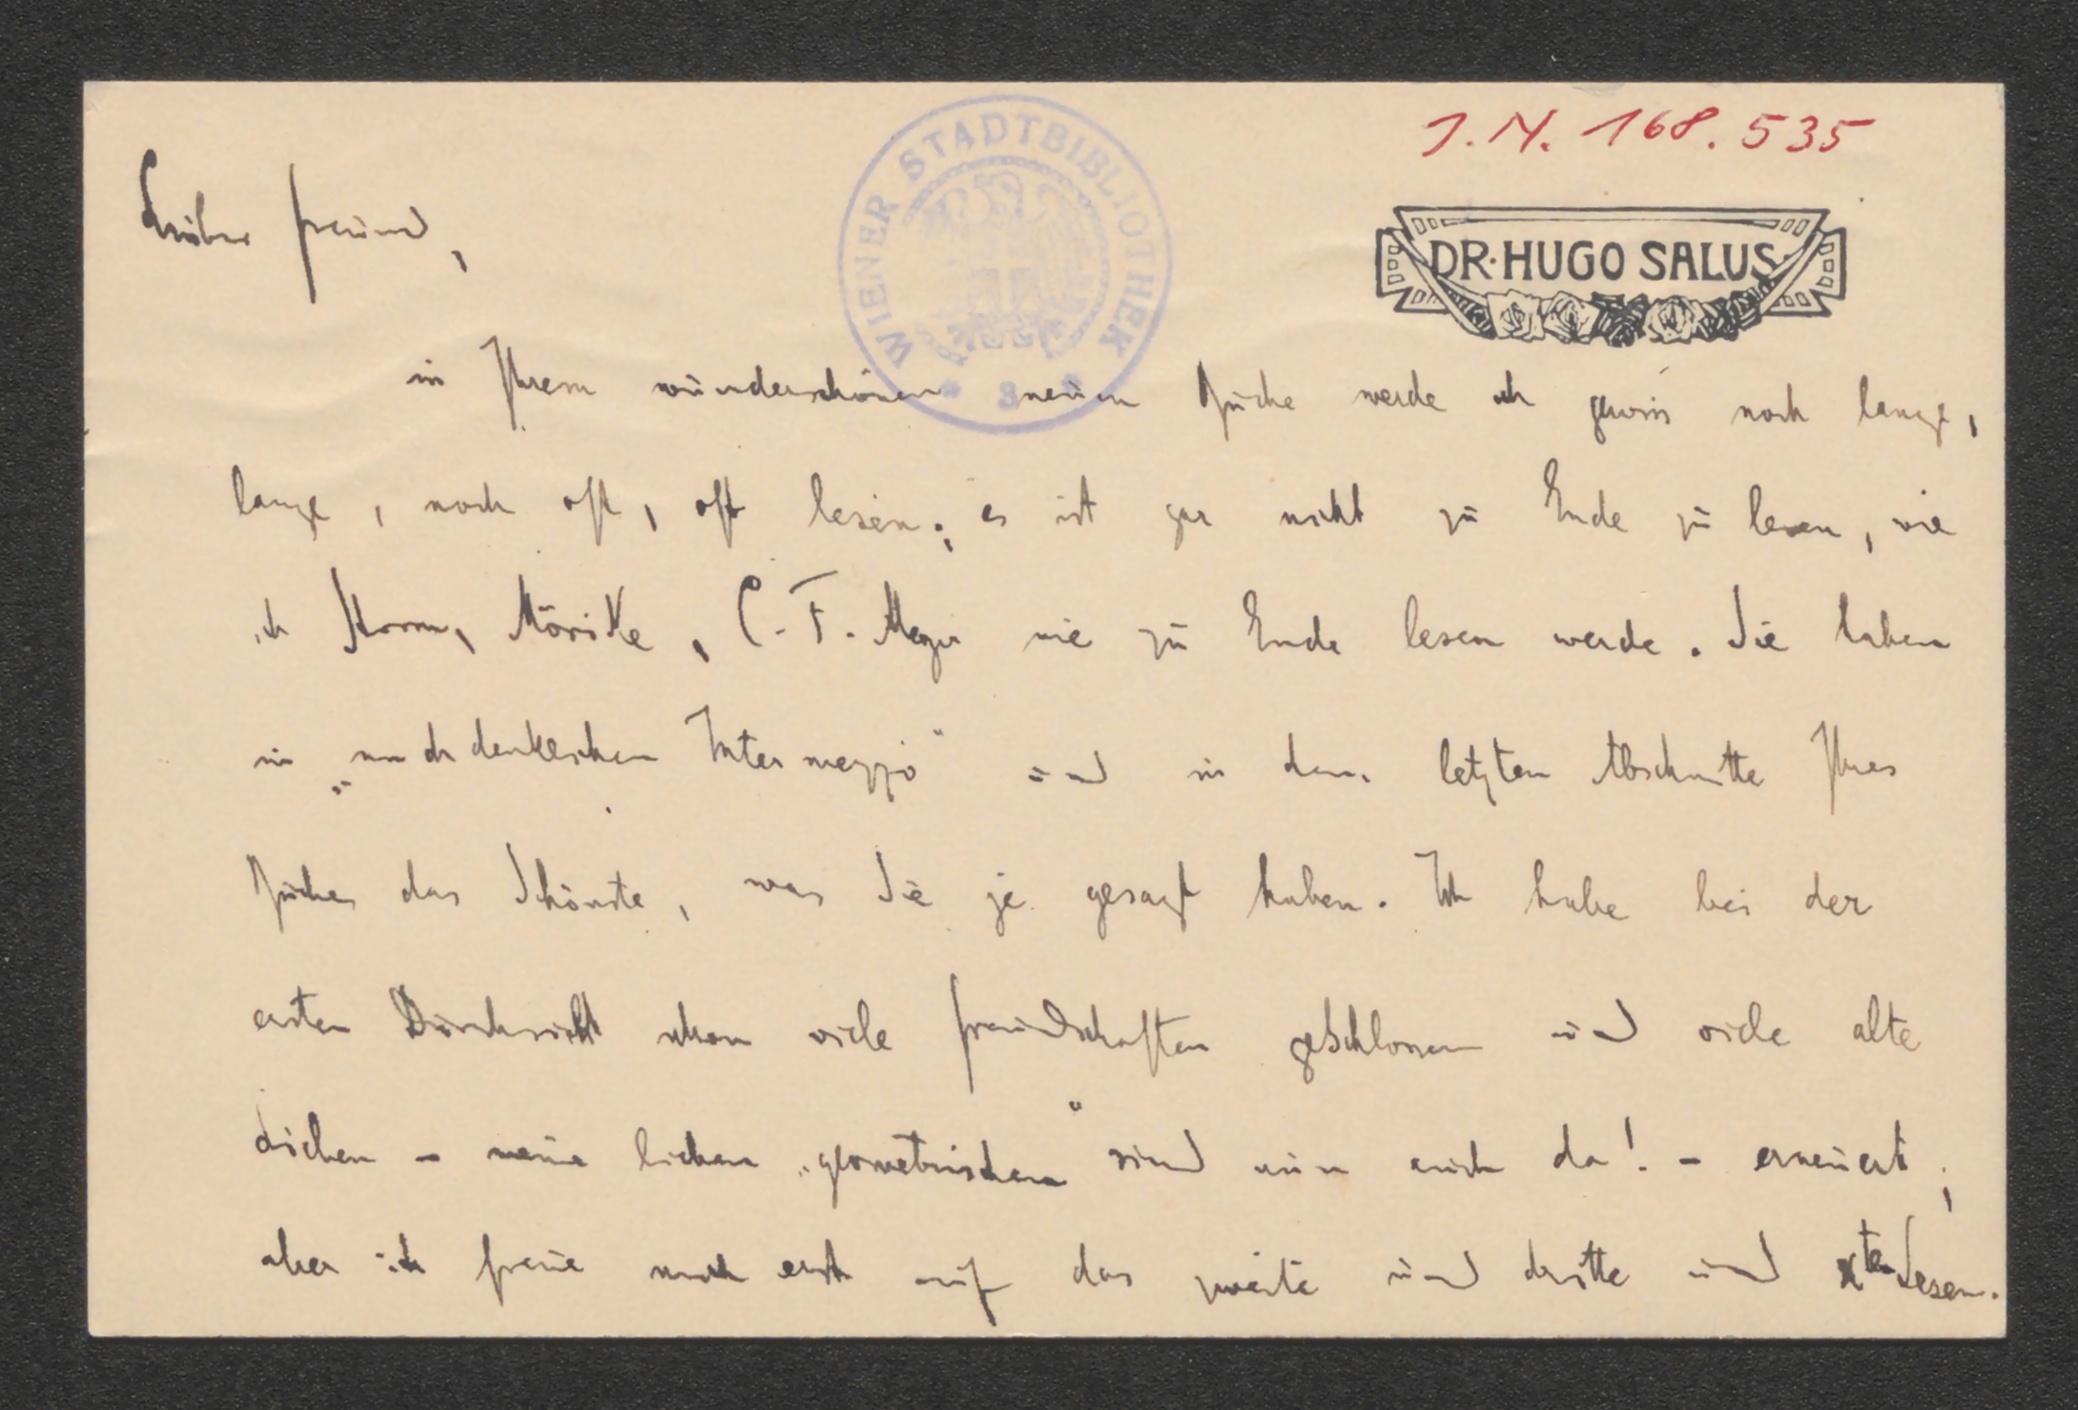 J.N. 168.535
WIENER STADTBIBLIOTHEK
DR. HUGO SALUS
Lieber Freund,
in Ihrem wunderschönen neuen Buche werde ich gewiss noch lange,
lange, noch oft, oft lesen; es ist gar nicht zu Ende zu lesen, wie
ich Storm, Mörike, C. F. Meyer nie zu Ende lesen werde. Sie haben
im „nachdenklichen Intermezzo" und in dem letzten Abschnitte Ihres
Buches das Schönste, was Sie je gesagt haben. Ich habe bei der
ersten Durchsicht schon viele Freundschaften geschlossen und viele alte
Lieben – meine lieben „geometrischen" sind nun auch da! – erneuert;
aber ich freue mich erst auf das zweite und dritte und xte Lesen.